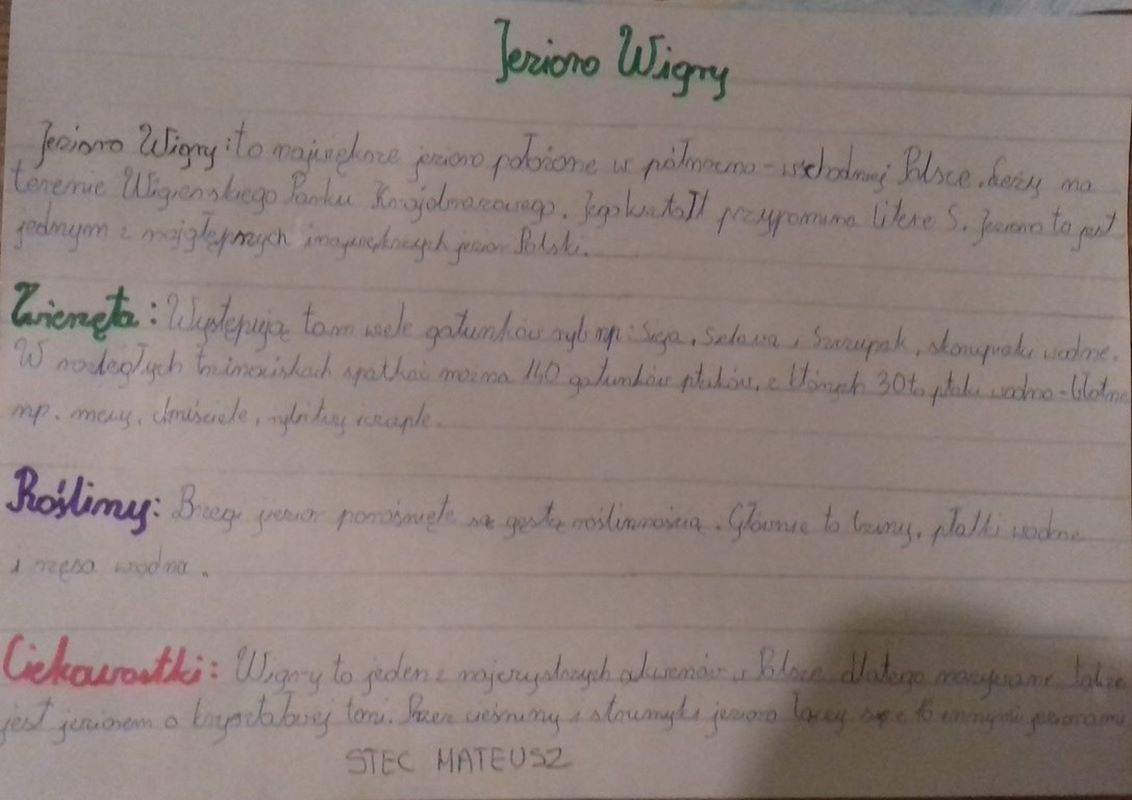 Jezioro Wigry
Jezioro Wigry: to największe jezioro położone w północno-wschodniej Polsce. Leży na
terenie Wigierskiego Parku Krajobrazowego. Jego kształt przypomina literę S. Jezioro to jest
jednym z najgłębszych i największych jezior Polski.
Zwierzęta: Występują tam wiele gatunków ryb np: Sieja, Sielawa, Szczupak, skorupiaki wodne.
W rozległych trzcinowiskach spotkać można 140 gatunków ptaków, z których 30 to ptaki wodno-błotne
np. mewy, rybitwy czaple.
Rośliny: Brzegi jezior porośnięte są gęstą roślinnością. Głównie to trzciny, pałki wodne
i rzęsa wodna.
Ciekawostki: Wigry to jeden z najczystszych akwenów w Polsce dlatego nazywane także
jest jeziorem o kryształowej toni. Przez cieśniny i strumyki jezioro łączy się z innymi jeziorami
STEC MATEUSZ